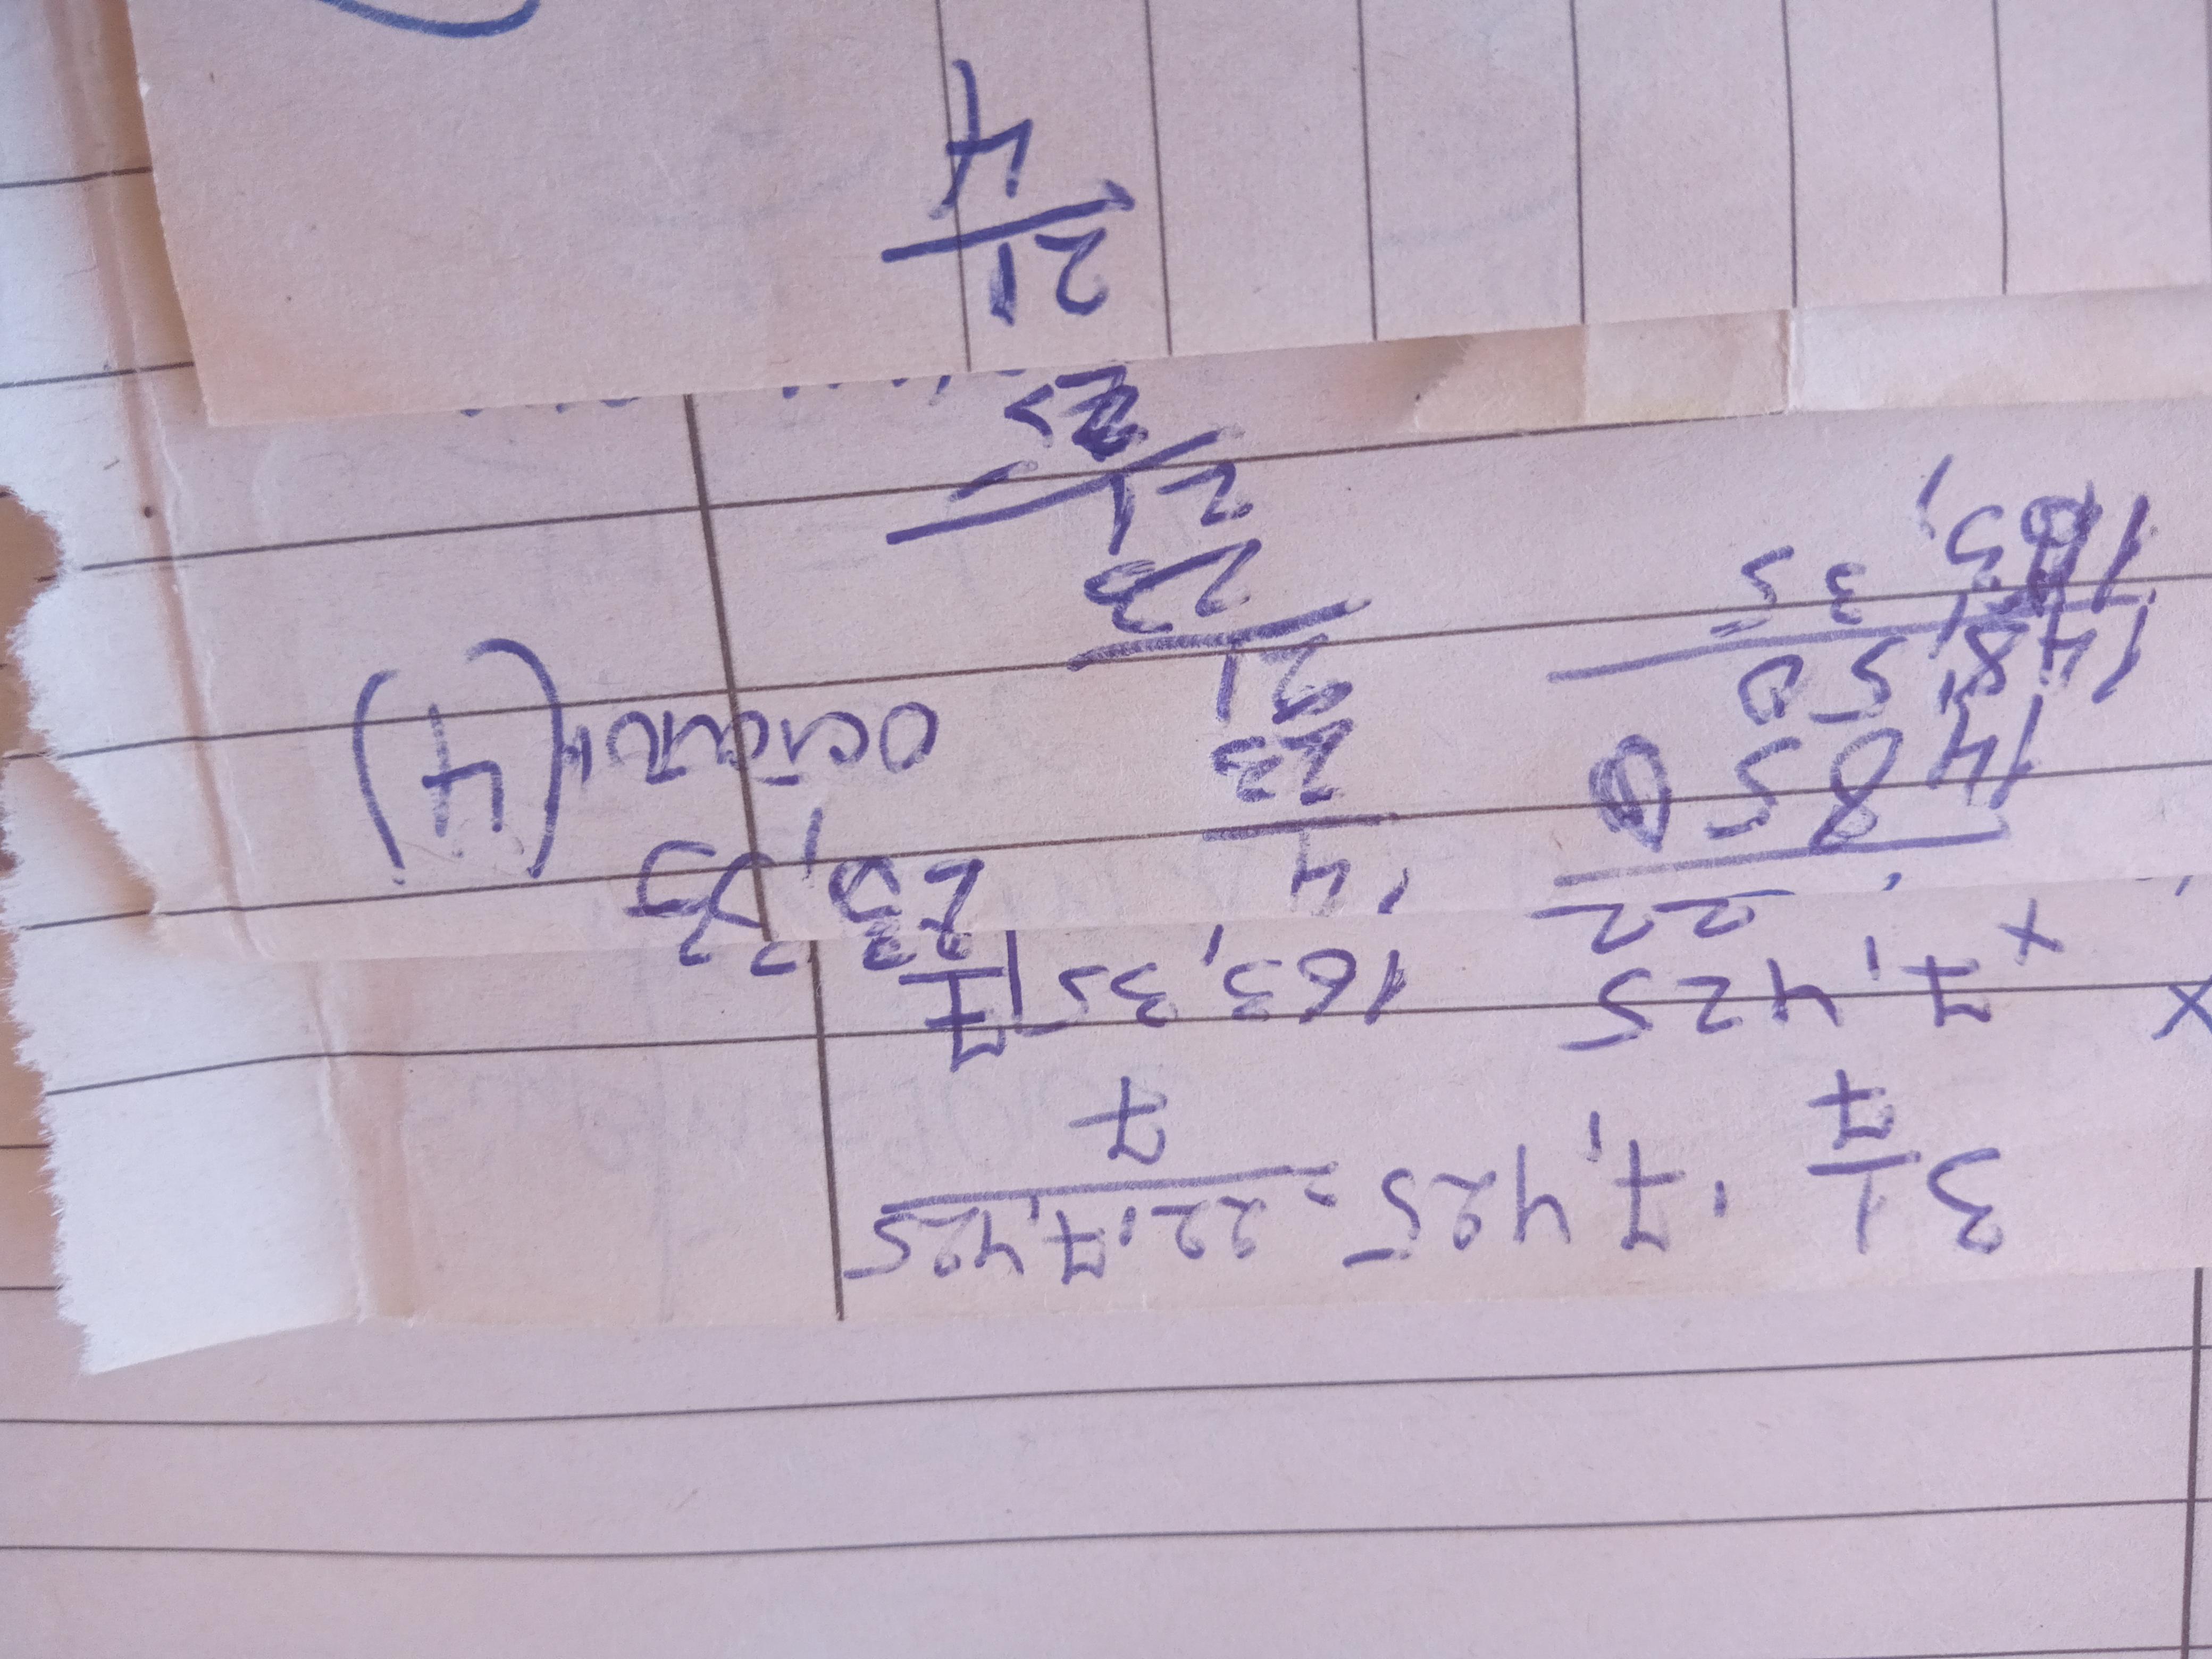 3 1/7 · 7,425 = 22·7,425 / 7
× 7,425
22
14850
14850
163,35
163,35 | 7
14
23
21
23
21
25
21
4
23,33
остаток (4)